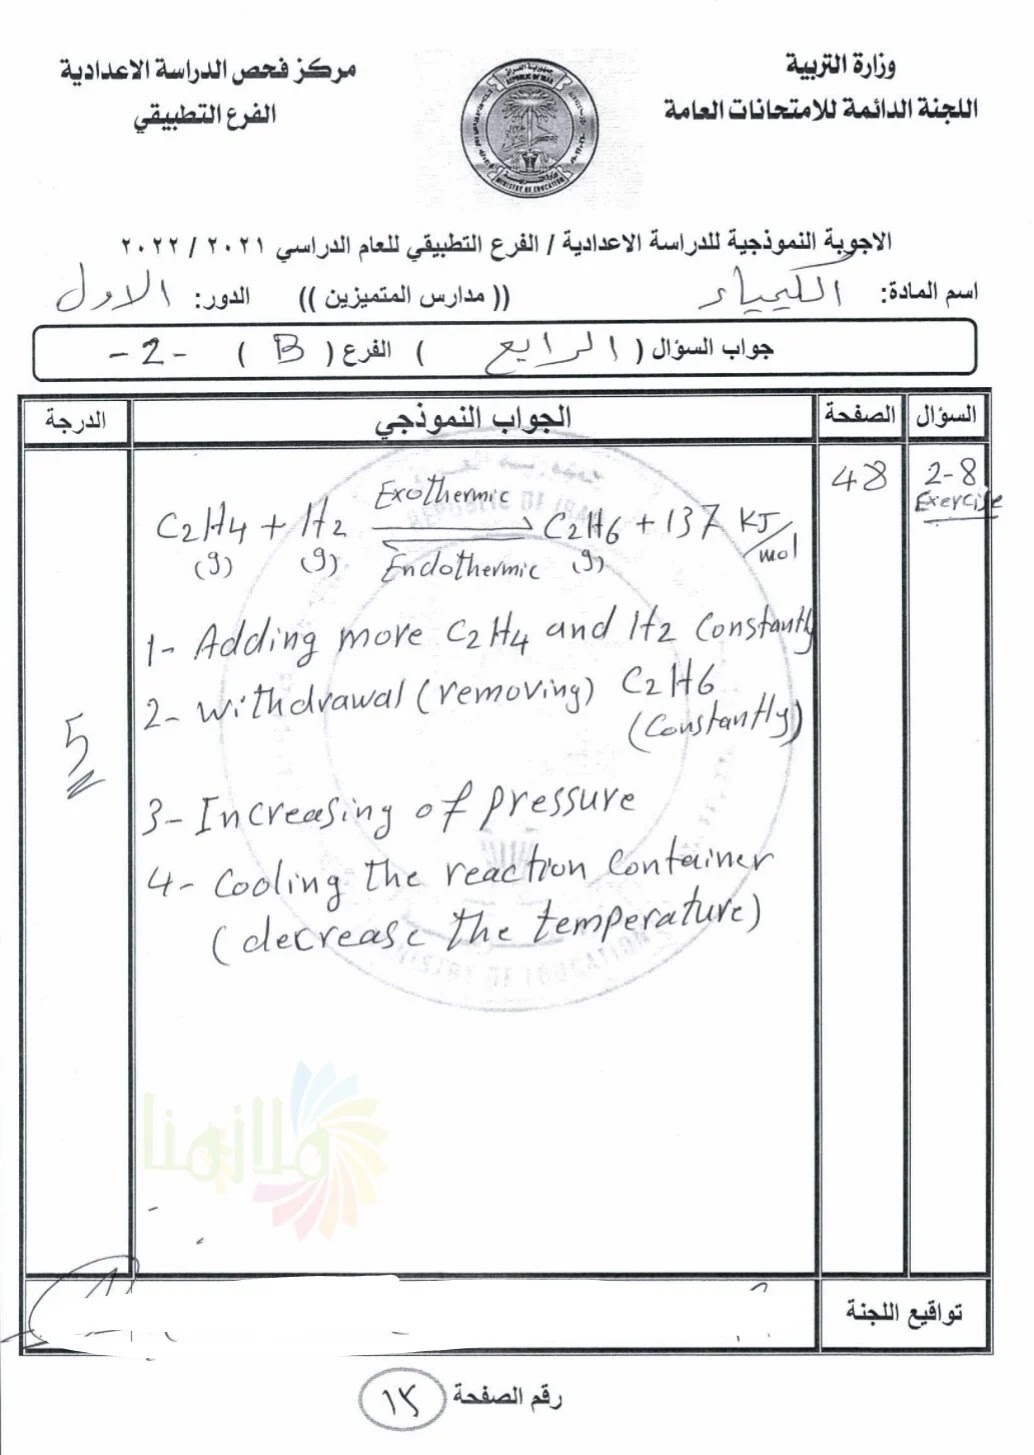 وزارة التربية
اللجنة الدائمة للامتحانات العامة
مركز فحص الدراسة الاعدادية
الفرع التطبيقي
REPUBLIC OF IRAQ
MINISTRY OF EDUCATION
الاجوبة النموذجية للدراسة الاعدادية / الفرع التطبيقي للعام الدراسي ٢٠٢١ / ٢٠٢٢
اسم المادة: الكيمياء (( مدارس المتميزين )) الدور: الاول
جواب السؤال ( الرابع ) الفرع ( B ) -2-
السؤال الصفحة الجواب النموذجي الدرجة
2-8 48
Exercise
Exothermic
C2H4 + H2 ⇌ C2H6 + 137 KJ/mol
(g) (g) Endothermic (g)
1- Adding more C2H4 and H2 Constantly
2- withdrawal (removing) C2H6
(Constantly)
5
3- Increasing of pressure
4- Cooling the reaction Container
(decrease the temperature)
ملازمنا
تواقيع اللجنة
رقم الصفحة ١٢